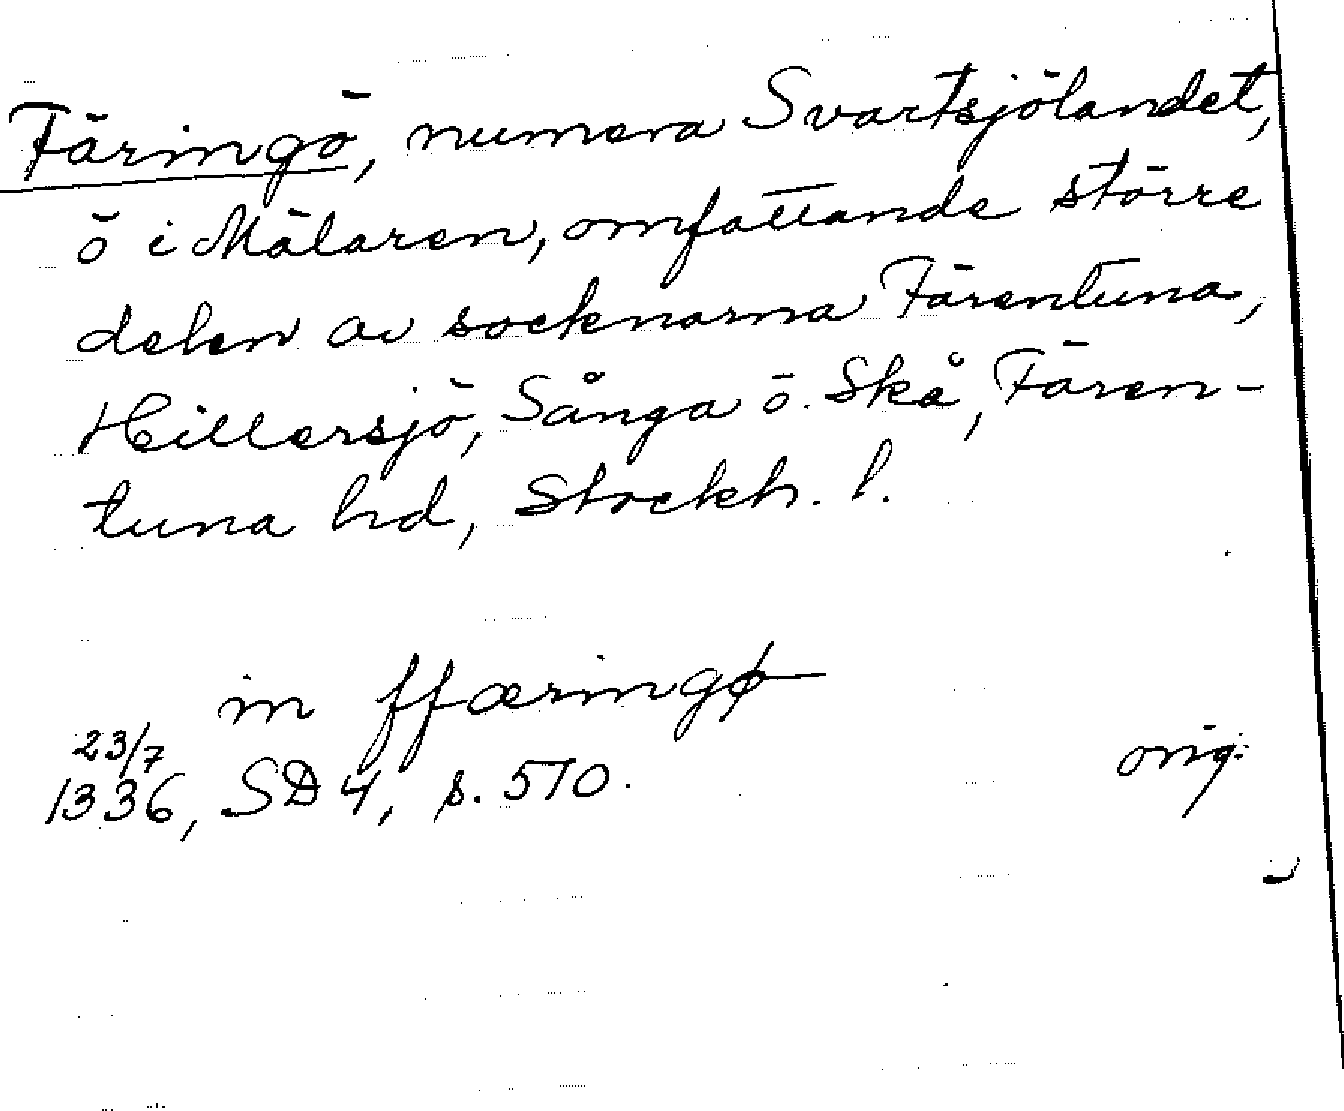 Färingö, numera Svartsjölandet,
ö i Mälaren, omfattande större
delen av socknarna Färentuna,
Hillersjö, Sånga o. Skå, Fären-
tuna hd, Stockh. l.
in ffæringø
23/7
1336, SD 4, s. 510.
orig.